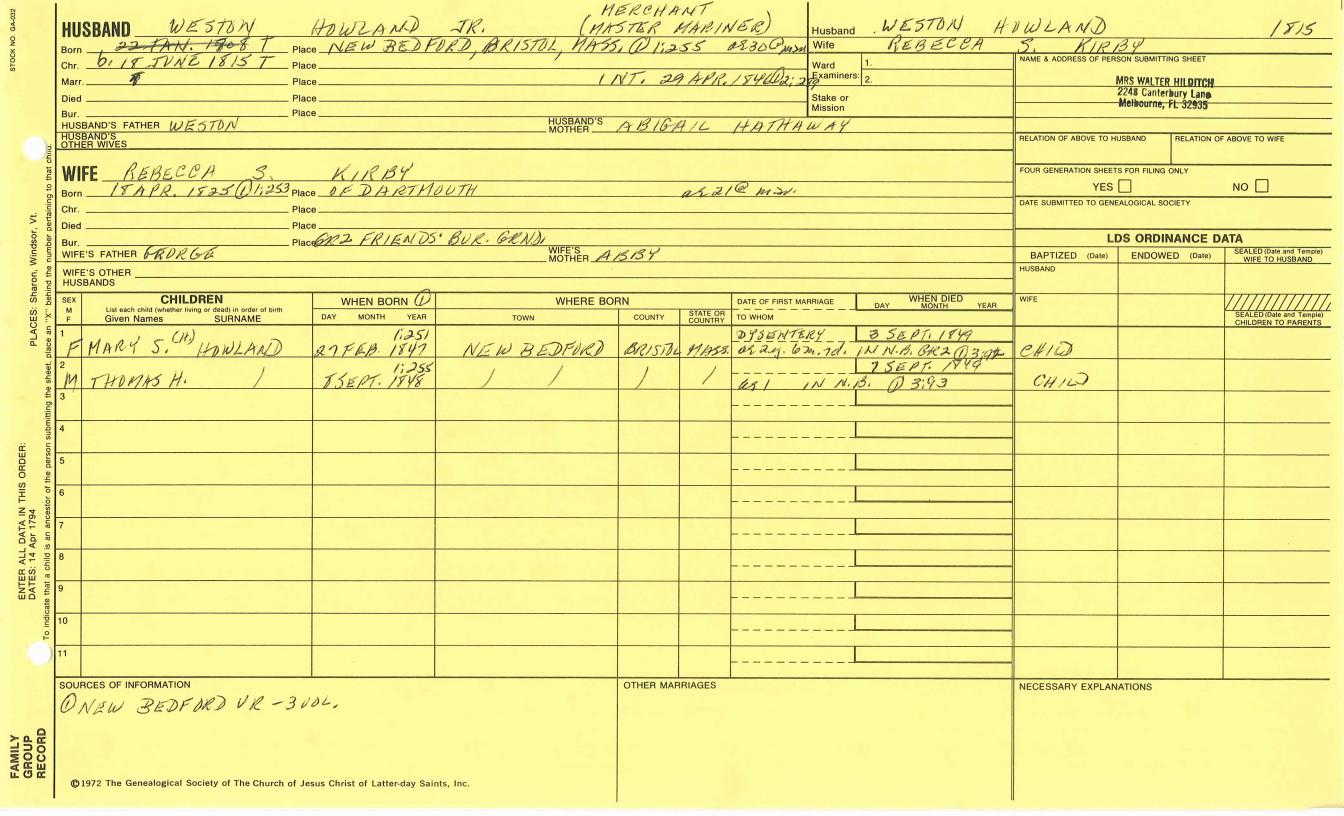 STOCK NO. GA-032
MERCHANT
HUSBAND WESTON HOWLAND JR. (MASTER MARINER)
Born 22 JAN. 1808 T Place NEW BEDFORD, BRISTOL, MASS. ① 1:255 as 30 @ mar
Chr. b. 18 JUNE 1815 T Place
Marr. Place INT. 29 APR. 184
Died Place
Bur. Place
HUSBAND'S FATHER WESTON HUSBAND'S MOTHER ABIGAIL HATHAWAY
HUSBAND'S OTHER WIVES
WIFE REBECCA S. KIRBY
Born 18 APR. 1825 ① 1:253 Place OF DARTMOUTH as 21 @ mar.
Chr. Place
Died Place
Bur. Place GR2 FRIENDS' BUR. GRND.
WIFE'S FATHER GEORGE WIFE'S MOTHER ABBY
WIFE'S OTHER HUSBANDS
Husband WESTON HOWLAND 1815
Wife REBECCA S. KIRBY
Ward Examiners: 1.
2.
Stake or Mission
NAME & ADDRESS OF PERSON SUBMITTING SHEET
MRS WALTER HILDITCH
2248 Canterbury Lane
Melbourne, FL 32935
RELATION OF ABOVE TO HUSBAND RELATION OF ABOVE TO WIFE
FOUR GENERATION SHEETS FOR FILING ONLY
YES NO
DATE SUBMITTED TO GENEALOGICAL SOCIETY
LDS ORDINANCE DATA
BAPTIZED (Date) ENDOWED (Date) SEALED (Date and Temple) WIFE TO HUSBAND
HUSBAND
WIFE
SEALED (Date and Temple) CHILDREN TO PARENTS
SEX M F
CHILDREN
List each child (whether living or dead) in order of birth
Given Names SURNAME
WHEN BORN ①
DAY MONTH YEAR
WHERE BORN
TOWN COUNTY STATE OR COUNTRY
DATE OF FIRST MARRIAGE
TO WHOM
WHEN DIED
DAY MONTH YEAR
1 1:251 DYSENTERY 3 SEPT. 1849
F MARY S. (H) HOWLAND 27 FEB. 1847 NEW BEDFORD BRISTOL MASS. as 2y. 6m. 7d. IN N.B. GR2 ① 3:92 CHILD
2 1:255 7 SEPT. 1849
M THOMAS H. / 8 SEPT. 1848 / / / / as 1 IN N.B. ① 3:93 CHILD
3
4
5
6
7
8
9
10
11
SOURCES OF INFORMATION
① NEW BEDFORD VR - 3 VOL.
OTHER MARRIAGES
NECESSARY EXPLANATIONS
©1972 The Genealogical Society of The Church of Jesus Christ of Latter-day Saints, Inc.
FAMILY GROUP RECORD
ENTER ALL DATA IN THIS ORDER:
DATES: 14 Apr 1794
PLACES: Sharon, Windsor, Vt.
To indicate that a child is an ancestor of the person submitting the sheet, place an "X" behind the number pertaining to that child.